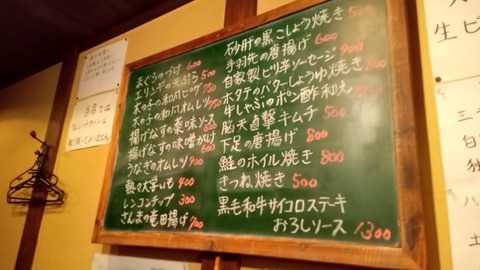 まぐろのづけ 600
エリンギの天ぷら 500
木の子の和風ピザ 750
木の子の和風オムレツ 750
揚げなすの薬味ソース 600
揚げなすの味噌がけ 600
うなぎのオムレツ 900
熱々大学いも 400
レンコンチップ 300
さんまの竜田揚げ 700
砂肝の黒こしょう焼き 500
手羽先の唐揚げ 600
自家製ピリ辛ソーセージ 900
ホタテのバターしょうゆ焼き 800
牛しゃぶのポン酢和え 800
脳天直撃キムチ 500
下足の唐揚げ 800
鮭のホイル焼き 800
きつね焼き 500
黒毛和牛サイコロステーキ
おろしソース 1300
当店では